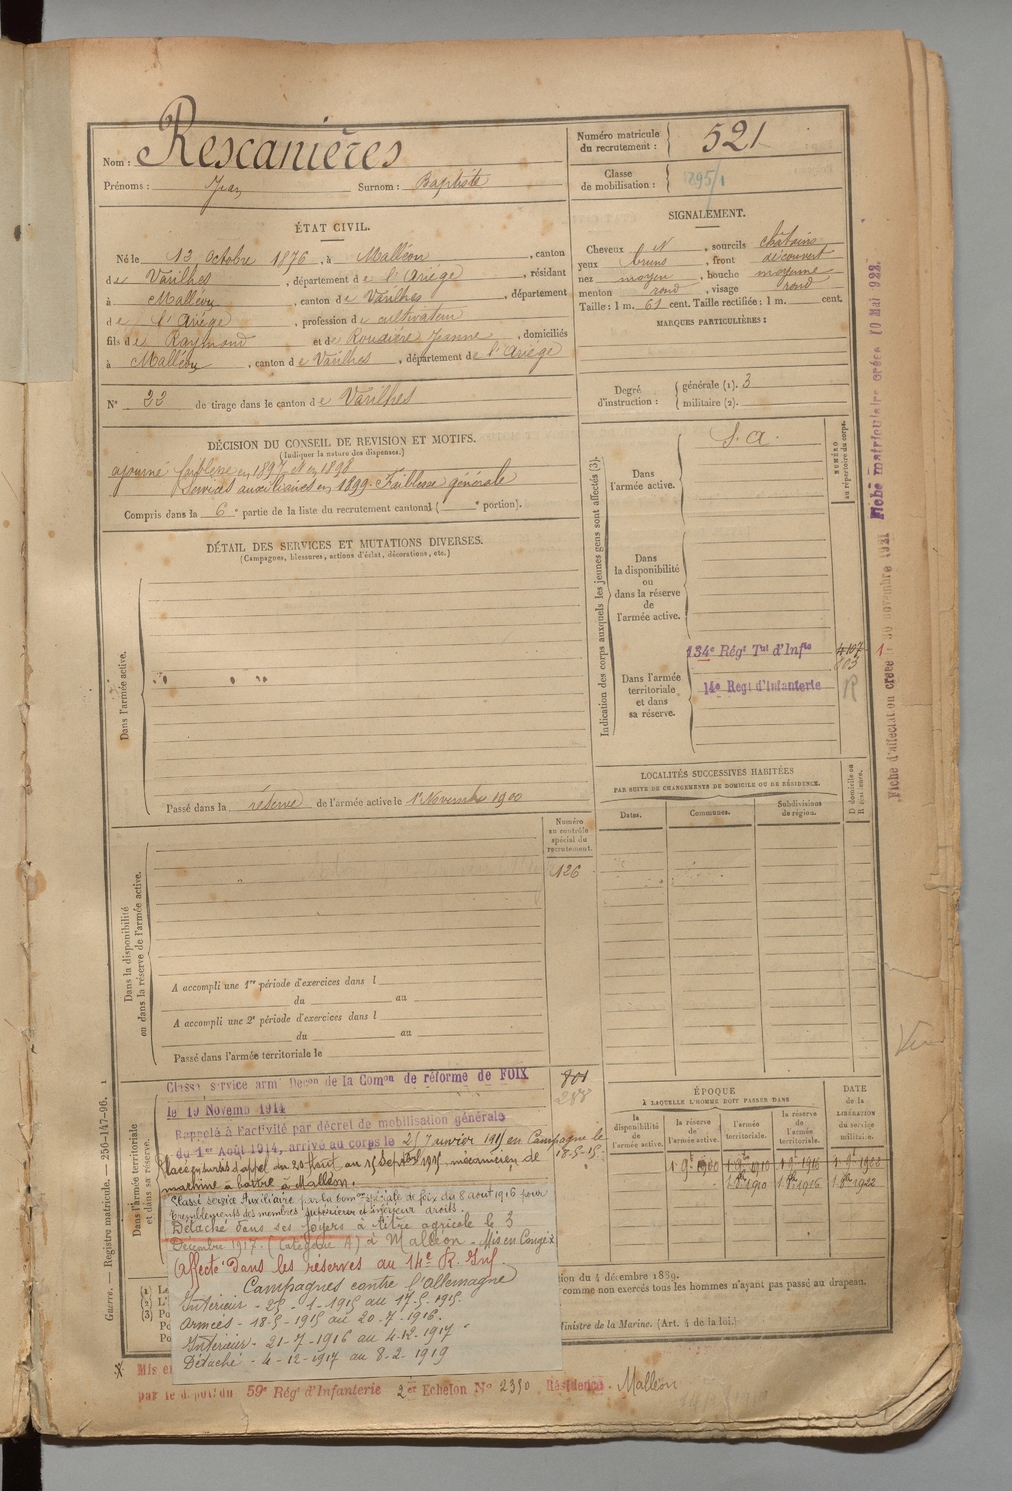 Nom : Rescanières
Prénoms : Jean Surnom : Baptiste
Numéro matricule du recrutement : 521
Classe de mobilisation : 1895/1
ÉTAT CIVIL.
Né le 13 Octobre 1876, à Malléon, canton
de Varilhes, département de l'Ariège, résidant
à Malléon, canton de Varilhes, département
de l'Ariège, profession de cultivateur
fils de Raymond et de Roudière Jeanne, domiciliés
à Malléon, canton de Varilhes, département de l'Ariège
N° 33 de tirage dans le canton de Varilhes
SIGNALEMENT.
Cheveux N, sourcils châtains
yeux bruns, front découvert
nez moyen, bouche moyenne
menton rond, visage rond
Taille : 1 m. 61 cent. Taille rectifiée : 1 m. cent.
MARQUES PARTICULIÈRES :
Degré d'instruction : générale (1). 3
militaire (2).
DÉCISION DU CONSEIL DE REVISION ET MOTIFS.
(Indiquer la nature des dispenses.)
ajourné faiblesse en 1897 et en 1898
Services auxiliaires en 1899. Faiblesse générale
Compris dans la 6e partie de la liste du recrutement cantonal ( e portion).
DÉTAIL DES SERVICES ET MUTATIONS DIVERSES.
(Campagnes, blessures, actions d'éclat, décorations, etc.)
Dans l'armée active.
Passé dans la réserve de l'armée active le 1er Novembre 1900
Indication des corps auxquels les jeunes gens sont affectés (3).
NUMÉRO au répertoire du corps.
Dans l'armée active. S. A.
Dans la disponibilité ou dans la réserve de l'armée active.
Dans l'armée territoriale et dans sa réserve.
134e Régt Tal d'Infie
14e Regt d'Infanterie
R
LOCALITÉS SUCCESSIVES HABITÉES
PAR SUITE DE CHANGEMENTS DE DOMICILE OU DE RÉSIDENCE.
Dates. Communes. Subdivisions de région. D domicile ou R résidence.
Dans la disponibilité ou dans la réserve de l'armée active.
Numéro au contrôle spécial du recrutement.
126
A accompli une 1re période d'exercices dans l
du au
A accompli une 2e période d'exercices dans l
du au
Passé dans l'armée territoriale le
Dans l'armée territoriale et dans sa réserve.
801
288
Classé service armé Décon de la Comon de réforme de FOIX
le 19 Novemb 1914
Rappelé à l'activité par décret de mobilisation générale
du 1er Août 1914, arrivé au corps le 25 Janvier 1915 en Campagne le
18-5-15.
Placé en sursis d'appel du 20 Août au 15 Septbre 1915, mécanicien de
machine à battre à Malléon.
Classé service Auxiliaire par la Comon spéciale de foix du 8 aout 1916 pour
tremblements des membres supérieur et inférieur droits.
Détaché dans ses foyers à titre agricole le 3
Décembre 1917. (Catégorie A) à Malléon - Mis en Congé X
Affecté dans les réserves au 14e R. Inf.
Campagnes contre l'allemagne
Intérieur - 25 - 1 - 1915 au 17-5-1915.
Armées - 18-5-1915 au 20-7-1916.
Intérieur - 21-7-1916 au 4-12-1917
Détaché - 4-12-1917 au 8-2-1919
ÉPOQUE
A LAQUELLE L'HOMME DOIT PASSER DANS
la disponibilité de l'armée active. la réserve de l'armée active. l'armée territoriale. la réserve de l'armée territoriale.
DATE de la LIBÉRATION DU service militaire.
1 9bre 1900 1 9bre 1910 1 9bre 1916 1 9bre 1922
1 8bre 1910 1 8bre 1916 1 8bre 1922
tion du 4 décembre 1889.
comme non exercés tous les hommes n'ayant pas passé au drapeau.
Ministre de la Marine. (Art. 4 de la loi.)
X Mis en
par le dépôt du 59e Régt d'Infanterie 2e Echelon No 2350 Résidence. Malléon
Guerre. — Registre matricule. — 250-147-96.
Fiche d'affectation créée 30 novembre 1921
Fiche matriculaire créée 10 Mai 1922.